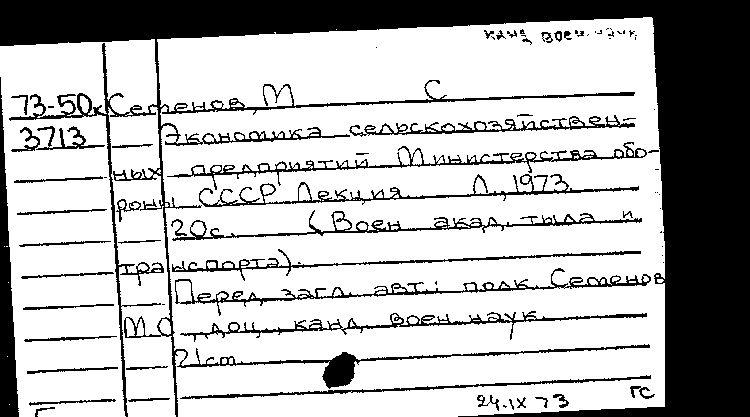 канд. воен. наук
73-50к Семенов, М С
3713 Экономика сельскохозяйствен-
ных предприятий Министерства обо-
роны СССР Лекция Л., 1973
20с. (Воен акад. тыла и
транспорта).
Перед загл. авт.: полк. Семенов
М.С., доц., канд. воен. наук.
21cm.
24.IX 73 ГС